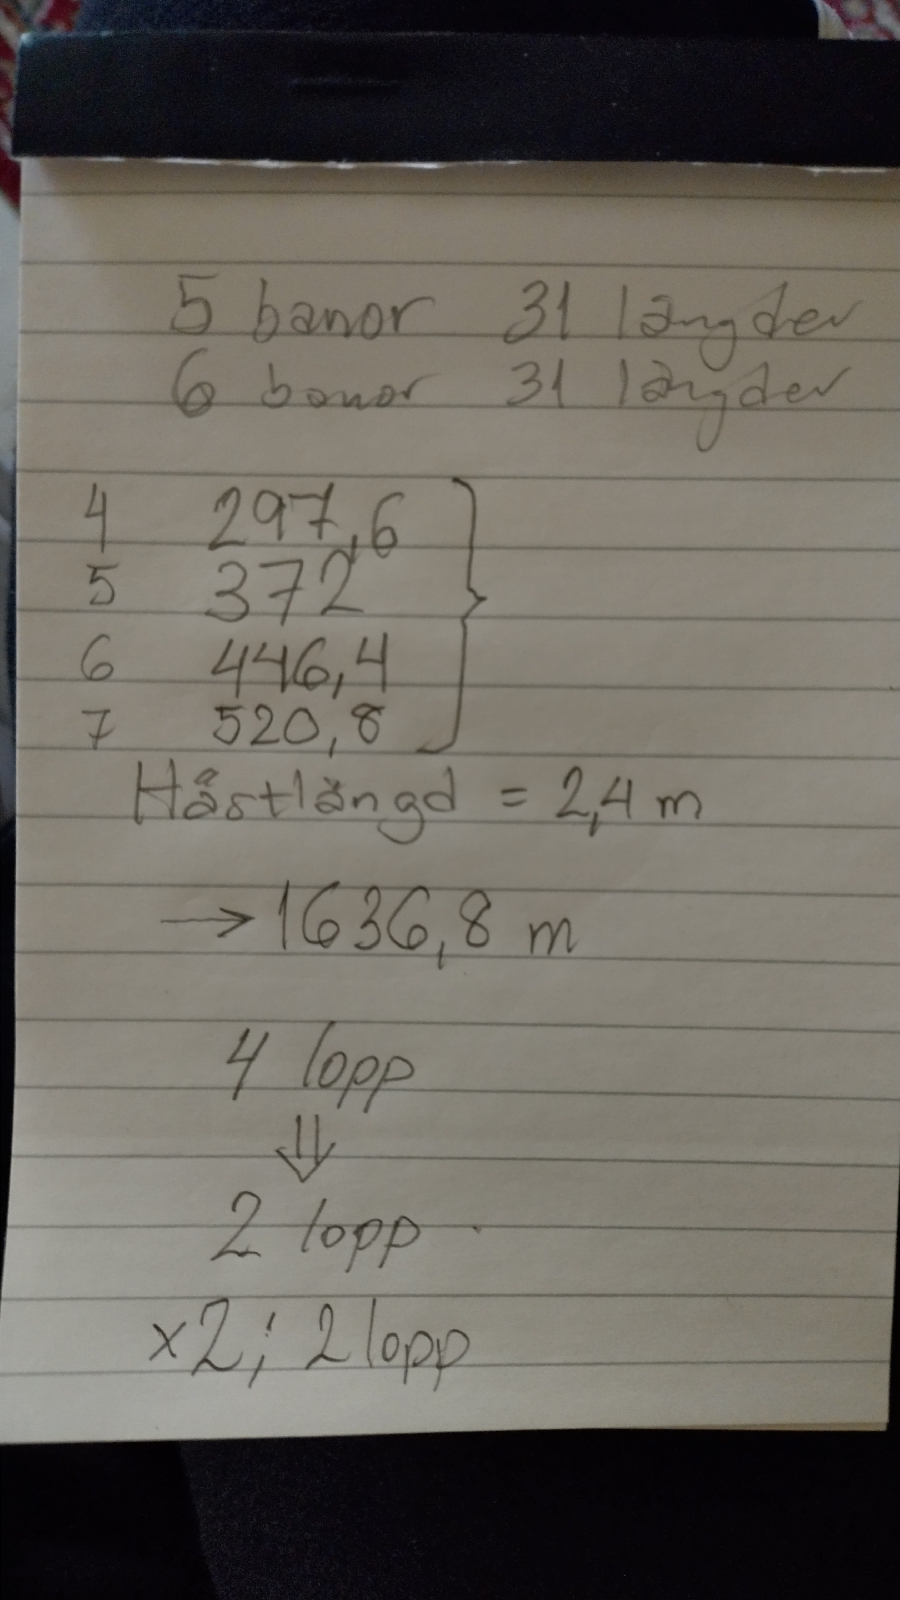 5 banor 31 längder
6 banor 31 längder
4 297,6
5 372
6 446,4
7 520,8
Hästlängd = 2,4 m
→ 1636,8 m
4 lopp
⇓
2 lopp
x2; 2 lopp